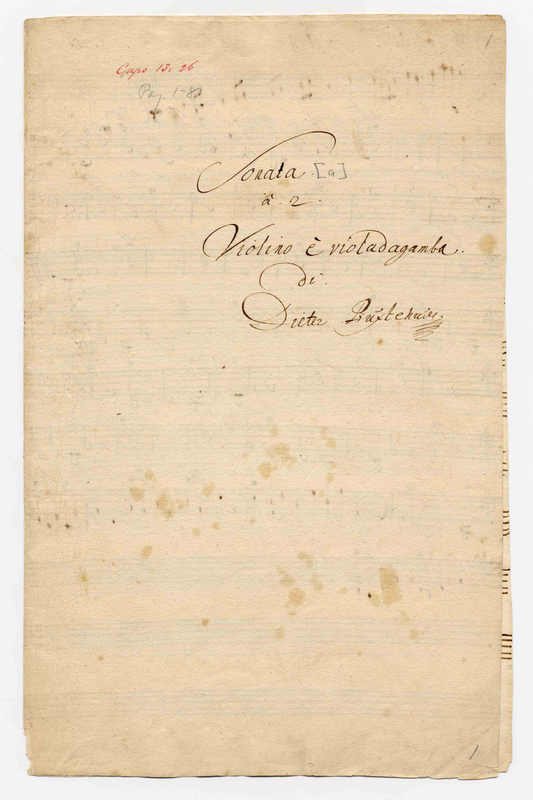 1
Caps 13: 26
Pag. 1-8
Sonata. [a]
â. 2.
Violino è violadagamba.
di.
Dieter
1